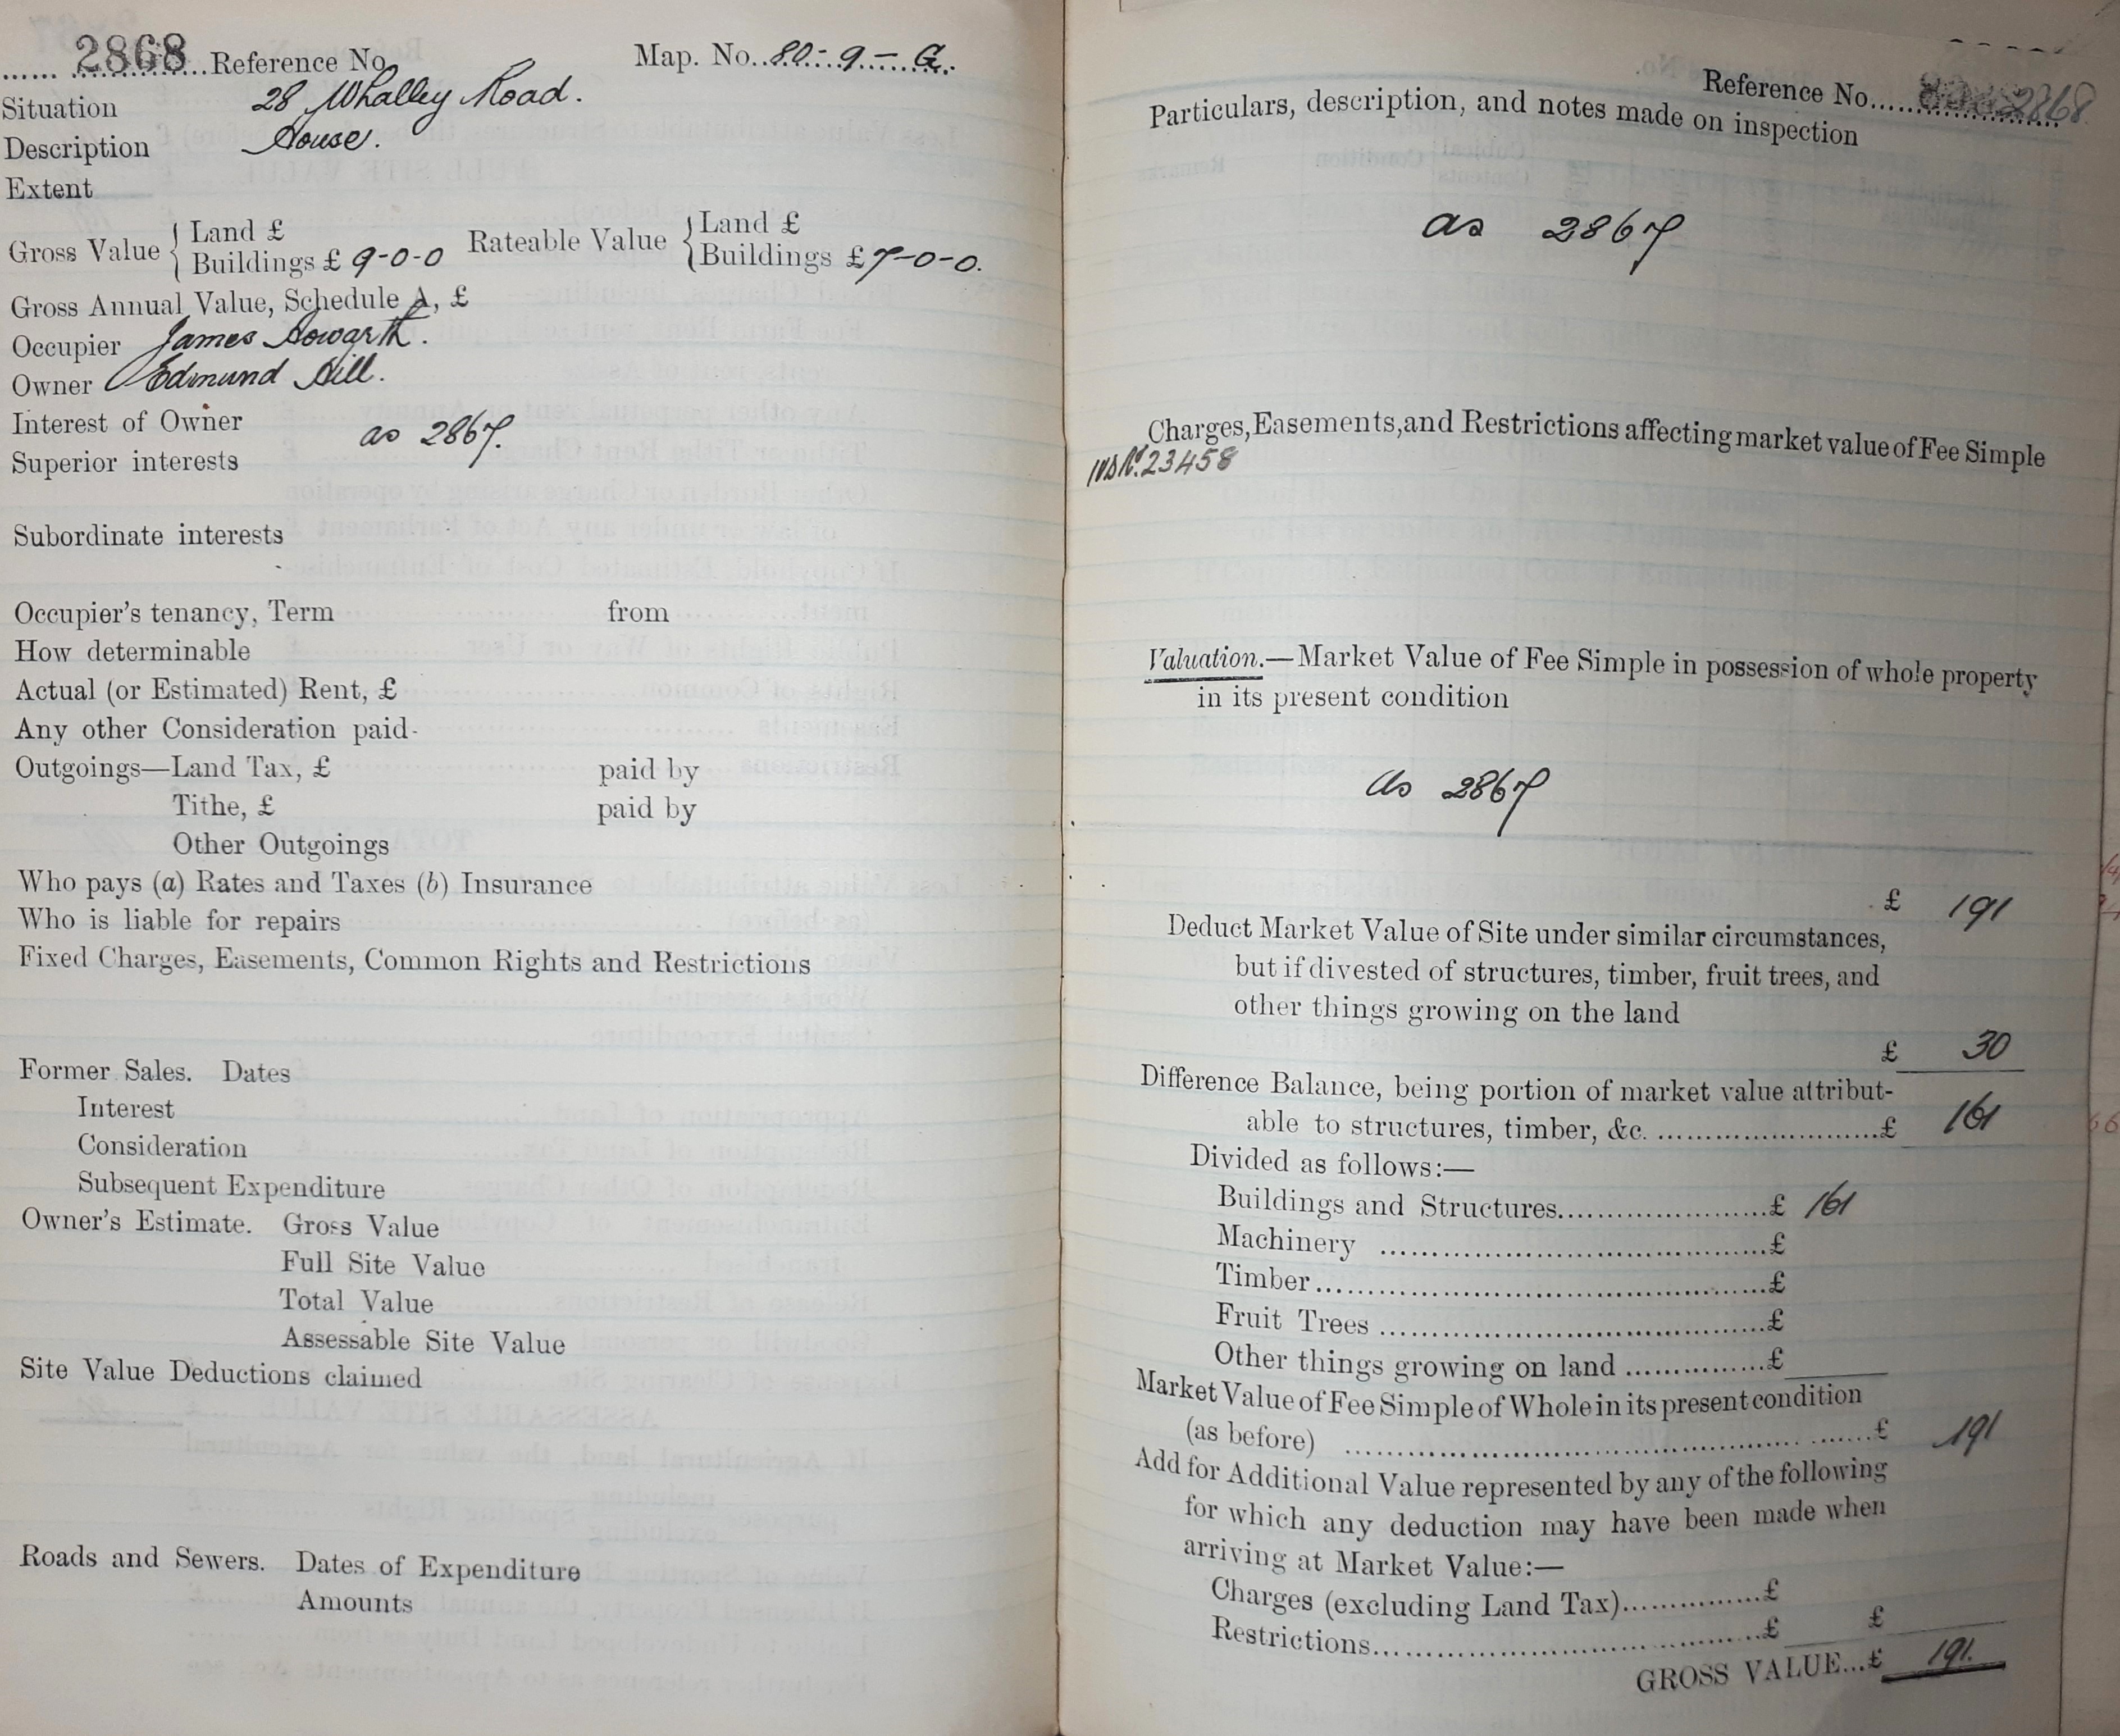 2868 Reference No. Map. No. 80-9-G.
Situation 28 Whalley Road.
Description House.
Extent
Gross Value { Land £ Rateable Value { Land £
Buildings £ 9-0-0 Buildings £ 7-0-0.
Gross Annual Value, Schedule A, £
Occupier James Howarth.
Owner Edmund Hill.
Interest of Owner
as 2867.
Superior interests
Subordinate interests
Occupier's tenancy, Term from
How determinable
Actual (or Estimated) Rent, £
Any other Consideration paid
Outgoings—Land Tax, £ paid by
Tithe, £ paid by
Other Outgoings
Who pays (a) Rates and Taxes (b) Insurance
Who is liable for repairs
Fixed Charges, Easements, Common Rights and Restrictions
Former Sales. Dates
Interest
Consideration
Subsequent Expenditure
Owner's Estimate. Gross Value
Full Site Value
Total Value
Assessable Site Value
Site Value Deductions claimed
Roads and Sewers. Dates of Expenditure
Amounts
Reference No. 2868
Particulars, description, and notes made on inspection
as 2867
Charges, Easements, and Restrictions affecting market value of Fee Simple
23458
Valuation.—Market Value of Fee Simple in possession of whole property
in its present condition
as 2867
£ 191
Deduct Market Value of Site under similar circumstances,
but if divested of structures, timber, fruit trees, and
other things growing on the land
£ 30
Difference Balance, being portion of market value attribut-
able to structures, timber, &c. ........................£ 161
Divided as follows:—
Buildings and Structures......................£ 161
Machinery ........................................£
Timber..............................................£
Fruit Trees ........................................£
Other things growing on land ...............£
Market Value of Fee Simple of Whole in its present condition
(as before) ........................................£ 191
Add for Additional Value represented by any of the following
for which any deduction may have been made when
arriving at Market Value:—
Charges (excluding Land Tax)...............£
Restrictions........................................£ £
GROSS VALUE...£ 191.